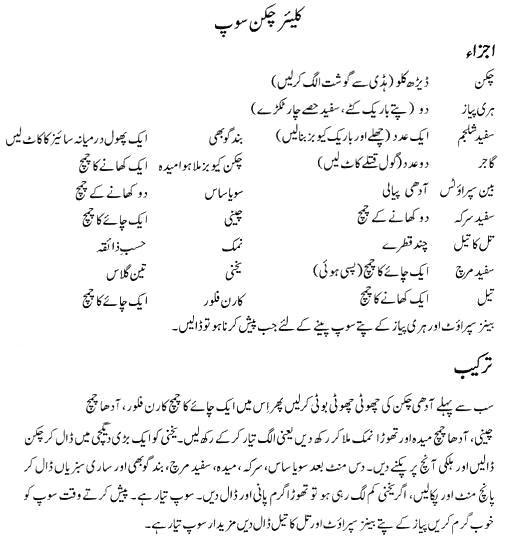 کلیئر چکن سوپ
اجزاء
چکن ڈیڑھ کلو (ہڈی سے گوشت الگ کرلیں)
ہری پیاز دو (پتے باریک کٹے، سفید حصے چار ٹکڑے)
سفید شلجم ایک عدد (چھلے اور باریک کیوبز بنالیں) بند گوبھی ایک پھول درمیانہ سائیز کا کاٹ لیں
گاجر دو عدد (گول قتلے کاٹ لیں) چکن کیوبز ملا ہوا میدہ ایک کھانے کا چمچ
بین سپراؤٹس آدھی پیالی سویا ساس دو کھانے کے چمچ
سفید سرکہ دو کھانے کے چمچ چینی ایک چائے کا چمچ
تل کا تیل چند قطرے نمک حسب ذائقہ
سفید مرچ ایک چائے کا چمچ (پسی ہوئی) یخنی تین گلاس
تیل ایک کھانے کا چمچ کارن فلور ایک چائے کا چمچ
بینز سپراؤٹ اور ہری پیاز کے پتے سوپ پینے کے لئے جب پیش کرنا ہو تو ڈالیں۔
ترکیب
سب سے پہلے آدھی چکن کی چھوٹی چھوٹی بوٹی کرلیں پھر اس میں ایک چائے کا چمچ کارن فلور، آدھا چمچ
چینی، آدھا چمچ میدہ اور تھوڑا نمک ملا کر رکھ دیں یعنی الگ تیار کرکے رکھ لیں۔ یخنی کو ایک بڑی دیگچی میں ڈال کر چکن
ڈالیں اور ہلکی آنچ پر پکنے دیں۔ دس منٹ بعد سویا ساس، سرکہ، میدہ، سفید مرچ، بند گوبھی اور ساری سبزیاں ڈال کر
پانچ منٹ اور پکالیں، اگر یخنی کم لگ رہی ہو تو تھوڑا گرم پانی اور ڈال دیں۔ سوپ تیار ہے۔ پیش کرتے وقت سوپ کو
خوب گرم کریں پیاز کے پتے بینز سپراؤٹ اور تل کا تیل ڈال دیں مزیدار سوپ تیار ہے۔